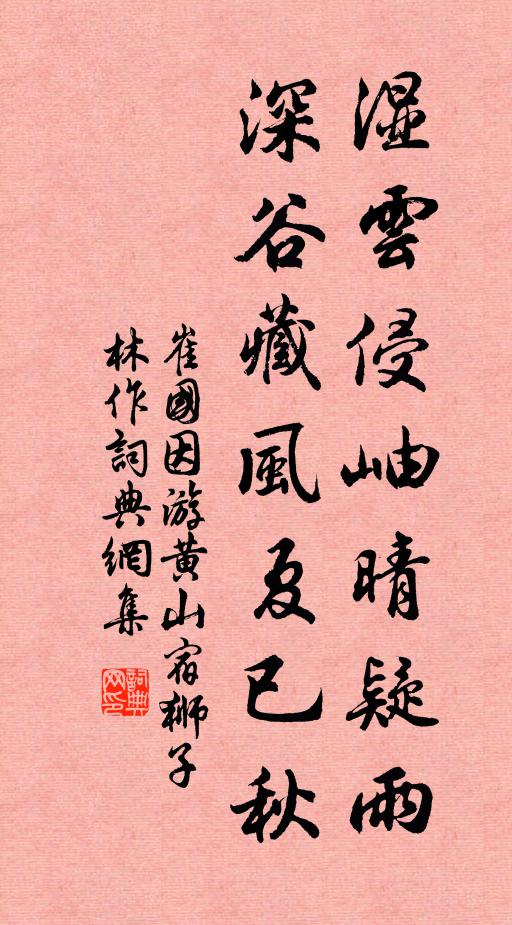 湿雲侵岫晴疑雨
深谷藏風夏已秋
崔國因游黄山宿獅子
林作詞典網集
詞典網印